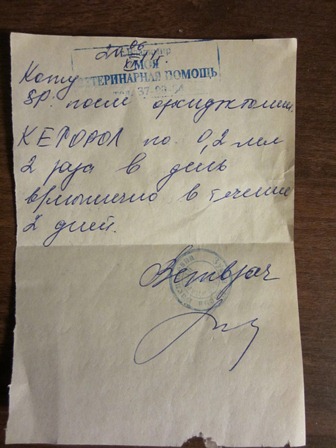 МОЯ
ВЕТЕРИНАРНАЯ ПОМОЩЬ
Коту
SP. после орхидэктомии
КЕТОРОЛ по 0,2 мл
2 раза в день
в/мышечно в течение
2 дней.
Ветврач